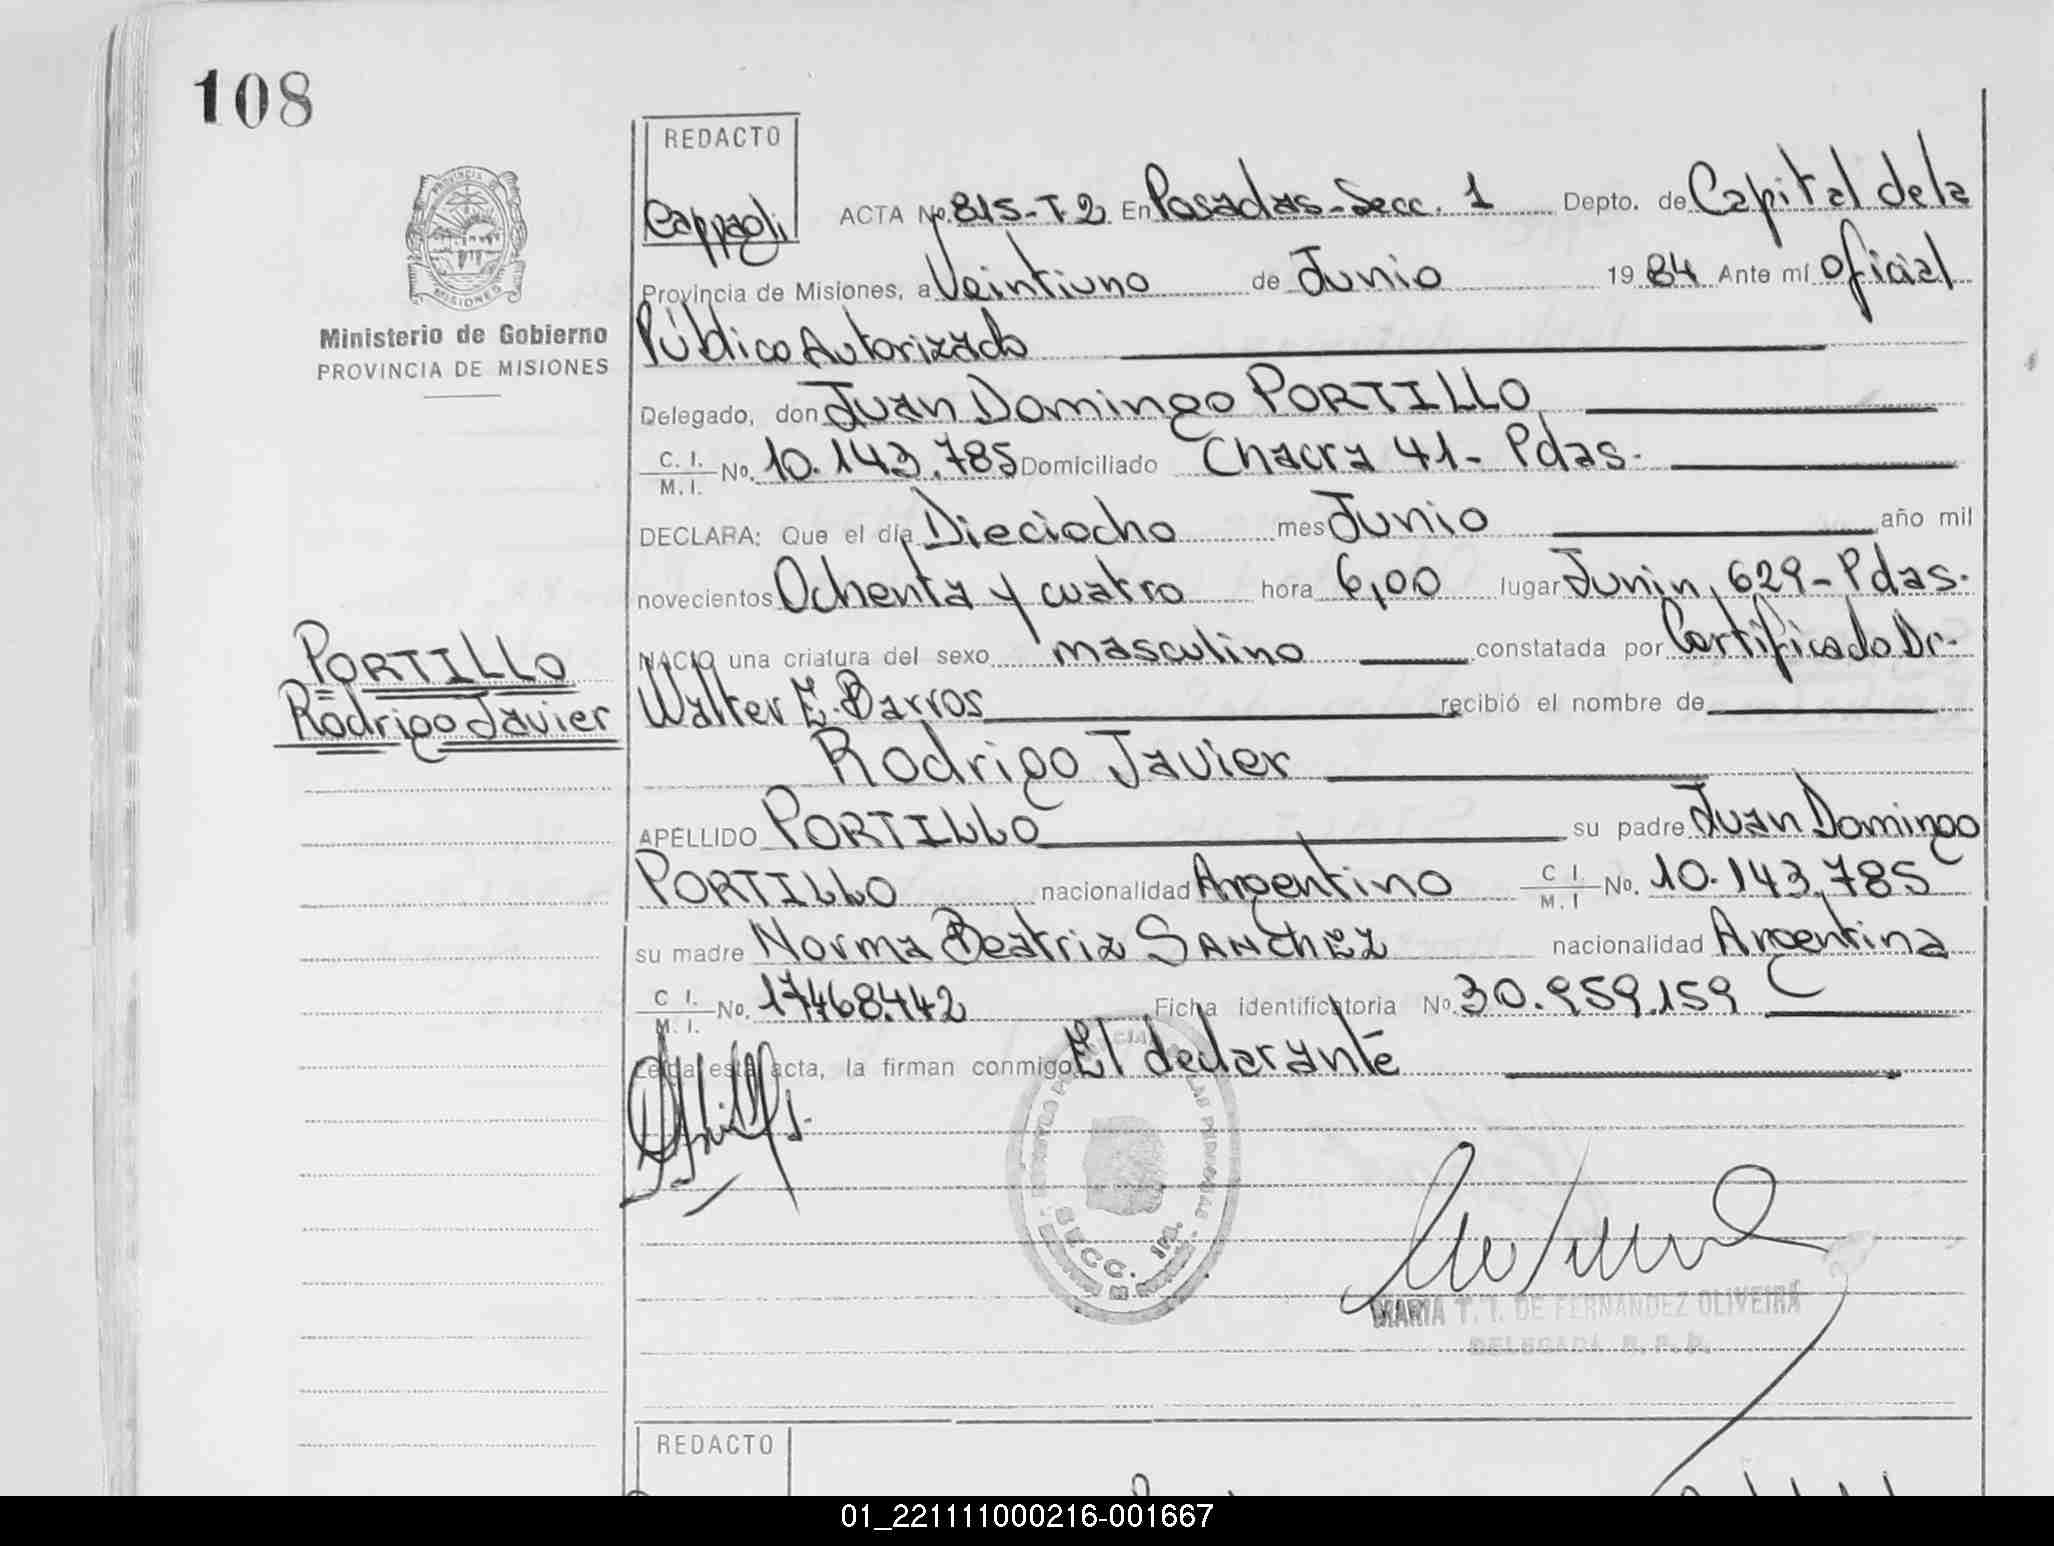 108
REDACTO
Cappagli
ACTA No. 815-T.2 En Posadas-Secc. 1 Depto. de Capital de la
Provincia de Misiones, a Veintiuno de Junio 19 84 Ante mí Oficial
Público Autorizado
Delegado, don Juan Domingo PORTILLO
C. I. M. I. No. 10.143.785 Domiciliado Chacra 41- Pdas.
DECLARA: Que el día Dieciocho mes Junio año mil
novecientos Ochenta y cuatro hora 6,00 lugar Junin, 629-Pdas.
NACIO una criatura del sexo masculino constatada por Certificado Dr.
Walter E. Barros recibió el nombre de
Rodrigo Javier
APELLIDO PORTILLO su padre Juan Domingo
PORTILLO nacionalidad Argentino C I. M. I No. 10.143.785
su madre Norma Beatriz SANCHEZ nacionalidad Argentina
C I. M. I. No. 17.468.442 Ficha identificatoria No. 30.959.159
Leida esta acta, la firman conmigo El declarante
PROVINCIA DE MISIONES
Ministerio de Gobierno
PROVINCIA DE MISIONES
PORTILLO
Rodrigo Javier
SECC. 1ra.
MARIA T. I. DE FERNANDEZ OLIVEIRA
DELEGADA R.P.P.
REDACTO
01_221111000216-001667